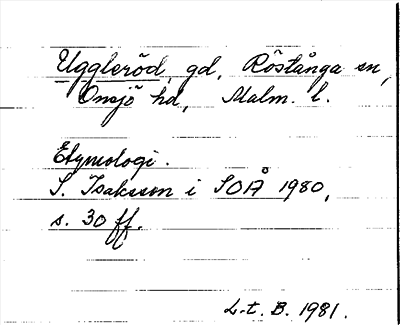 Uggleröd, gd, Röstånga sn,
Onsjö hd, Malm. l.
Etymologi.
S. Isaksson i SOÅ 1980,
s. 30 ff.
L-t. B. 1981.